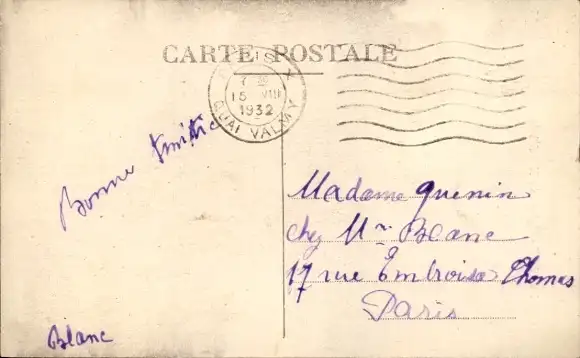 CARTE POSTALE
PARIS X
7 30
15 VIII
1932
QUAI VALMY
Bonne Amitié
Blanc
Madame Quenin
chez Mr Blanc
17 rue Embroise Thomas
Paris